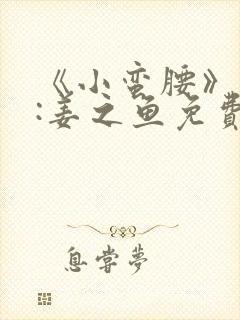 《小蛮腰》
:姜之鱼免費
息嘗夢